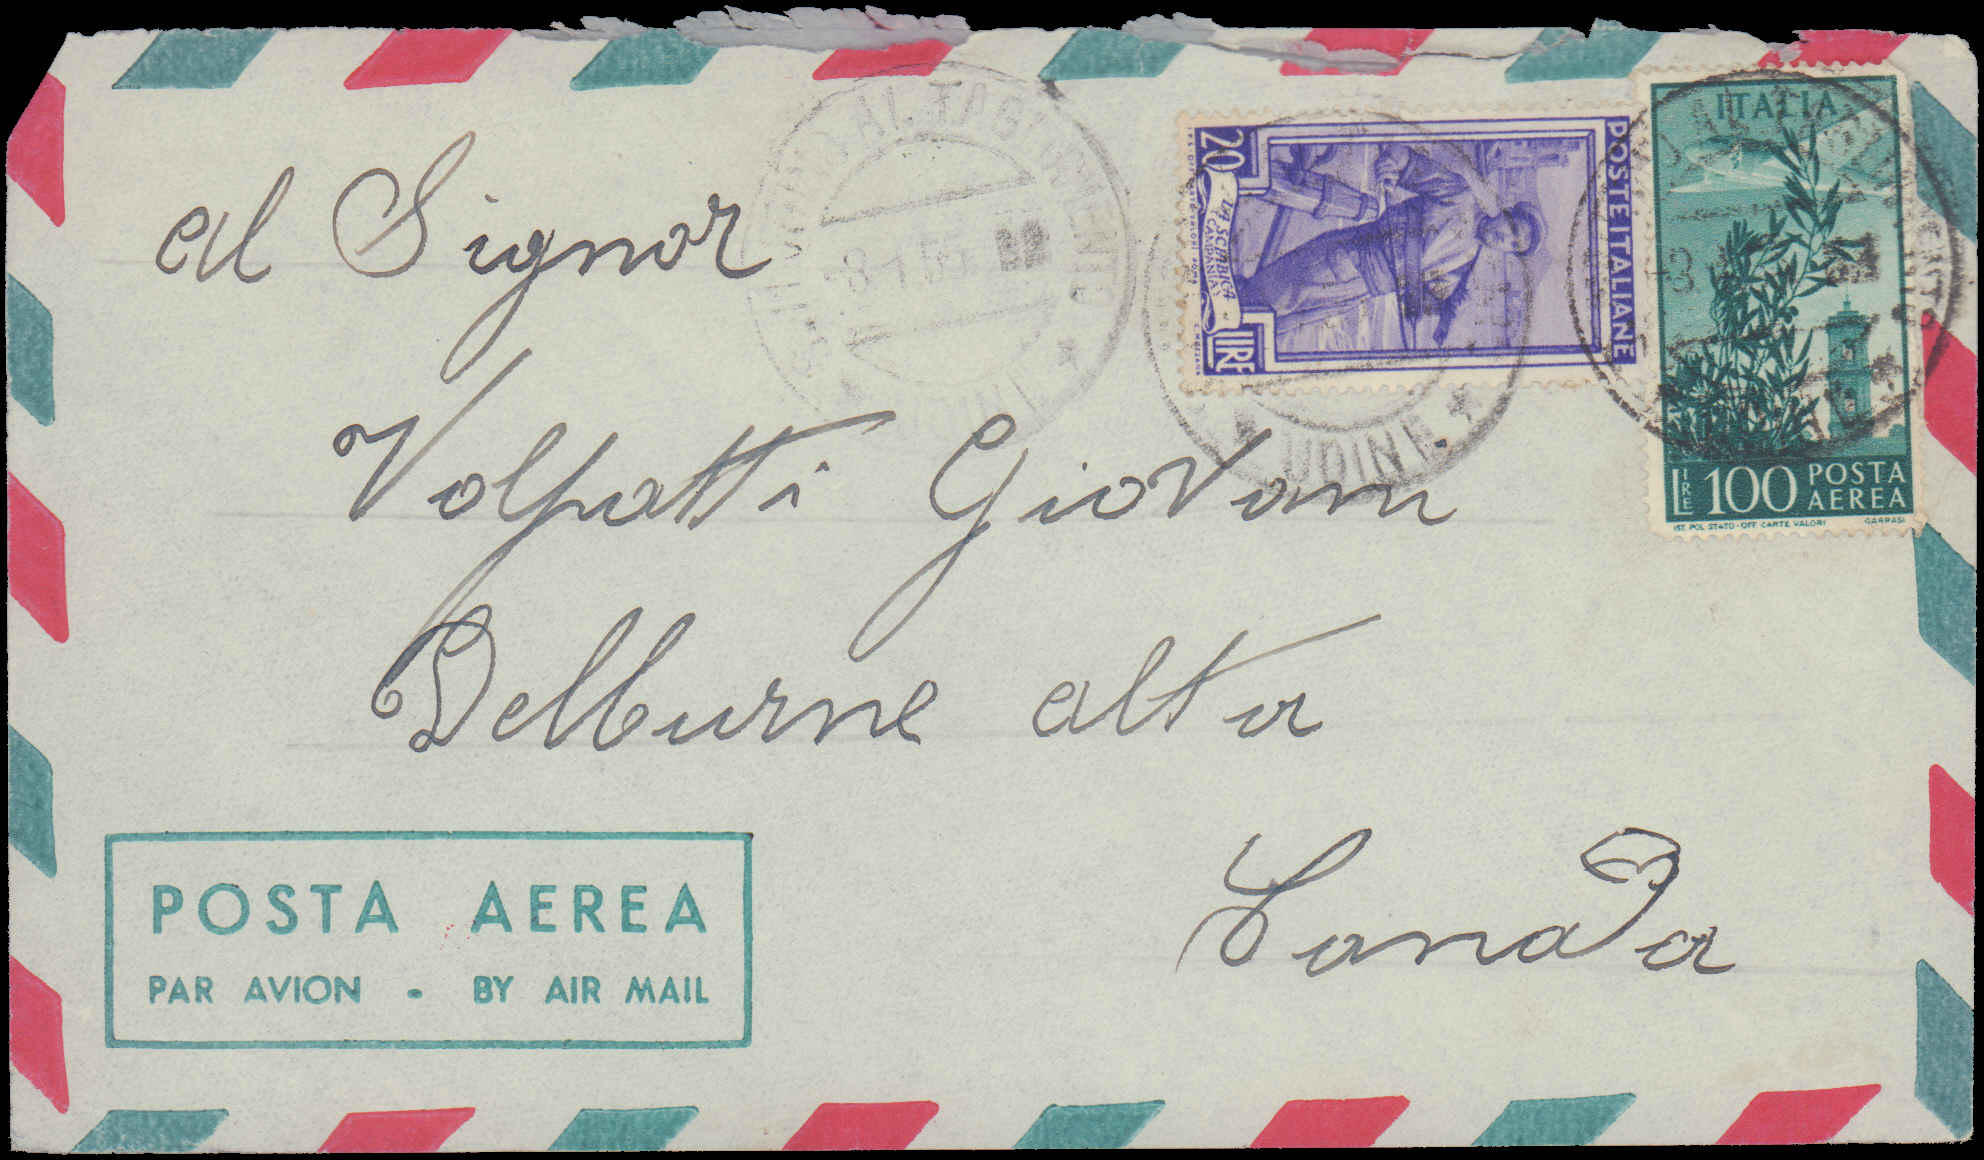 al Signor
Volpatti Giovani
Delburne alta
Canada
POSTA AEREA
PAR AVION - BY AIR MAIL
20 LIRE
LA SCIABICA
(CAMPANIA)
POSTE ITALIANE
ITALIA
LIRE 100 POSTA AEREA
IST. POL. STATO - OFF. CARTE VALORI
AL TAGLIAMENTO
UDINE